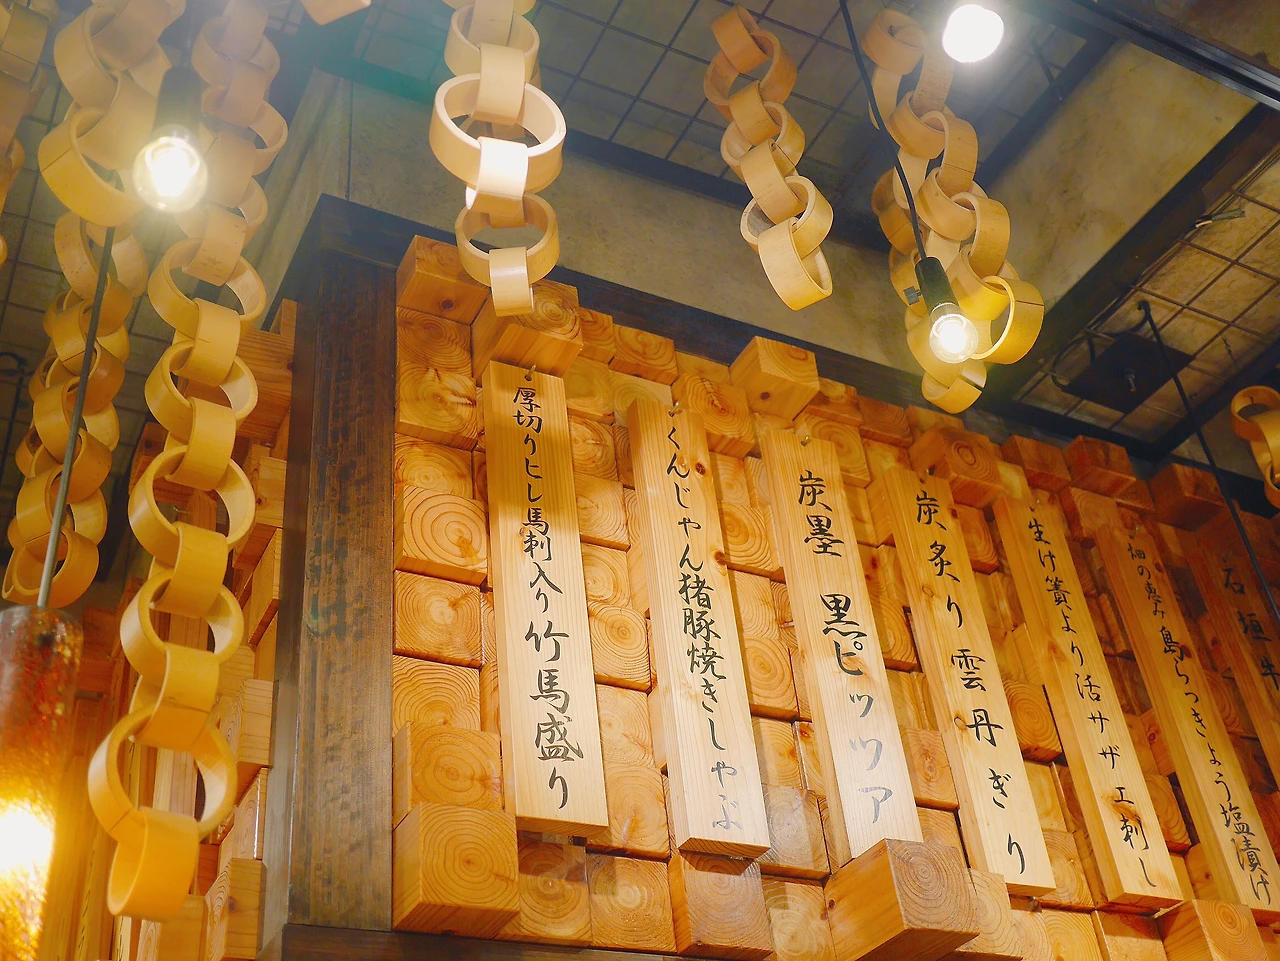 厚切りヒレ馬刺入り竹馬盛り
くんじゃん猪豚焼きしゃぶ
炭墨 黒ピッツァ
炭炙り雲丹ぎり
生け簀より活サザエ刺し
畑の恵み島らっきょう塩漬け
石垣牛